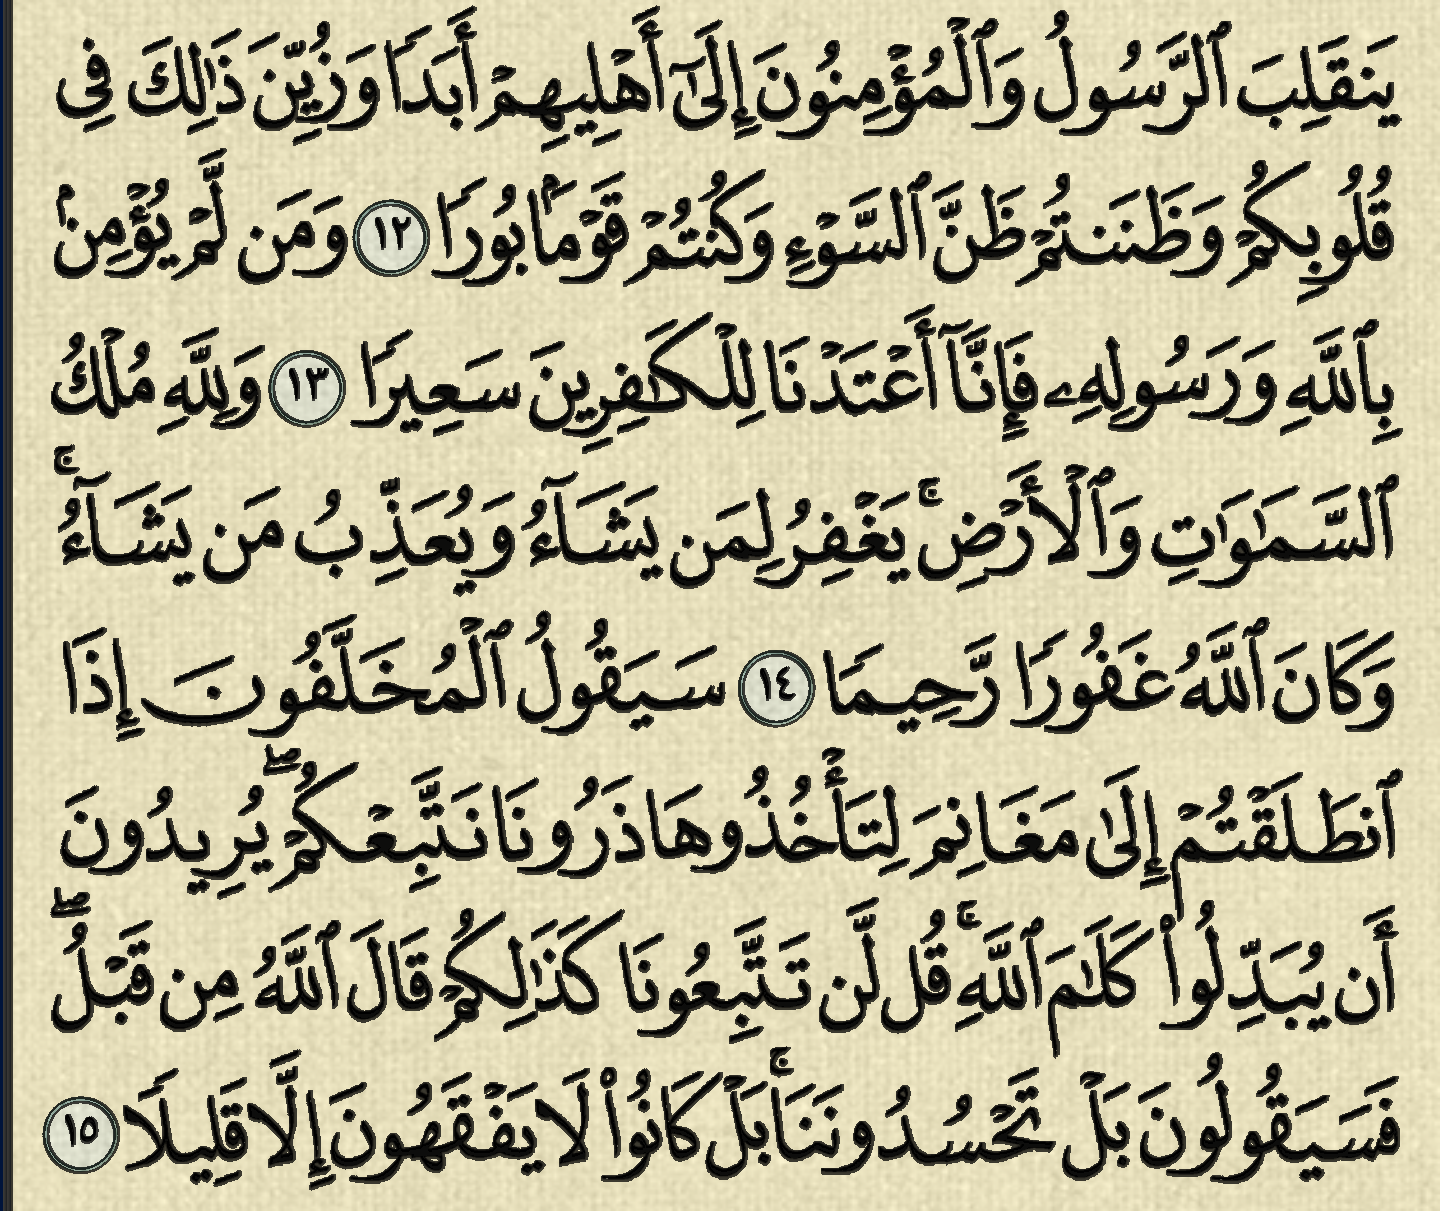 يَنقَلِبَ ٱلرَّسُولُ وَٱلْمُؤْمِنُونَ إِلَىٰٓ أَهْلِيهِمْ أَبَدًا وَزُيِّنَ ذَٰلِكَ فِى
قُلُوبِكُمْ وَظَنَنتُمْ ظَنَّ ٱلسَّوْءِ وَكُنتُمْ قَوْمًۢا بُورًا ١٢ وَمَن لَّمْ يُؤْمِنۢ
بِٱللَّهِ وَرَسُولِهِۦ فَإِنَّآ أَعْتَدْنَا لِلْكَـٰفِرِينَ سَعِيرًا ١٣ وَلِلَّهِ مُلْكُ
ٱلسَّمَـٰوَٰتِ وَٱلْأَرْضِ ۚ يَغْفِرُ لِمَن يَشَآءُ وَيُعَذِّبُ مَن يَشَآءُ ۚ
وَكَانَ ٱللَّهُ غَفُورًا رَّحِيمًا ١٤ سَيَقُولُ ٱلْمُخَلَّفُونَ إِذَا
ٱنطَلَقْتُمْ إِلَىٰ مَغَانِمَ لِتَأْخُذُوهَا ذَرُونَا نَتَّبِعْكُمْ ۖ يُرِيدُونَ
أَن يُبَدِّلُوا۟ كَلَـٰمَ ٱللَّهِ ۚ قُل لَّن تَتَّبِعُونَا كَذَٰلِكُمْ قَالَ ٱللَّهُ مِن قَبْلُ ۖ
فَسَيَقُولُونَ بَلْ تَحْسُدُونَنَا ۚ بَلْ كَانُوا۟ لَا يَفْقَهُونَ إِلَّا قَلِيلًا ١٥